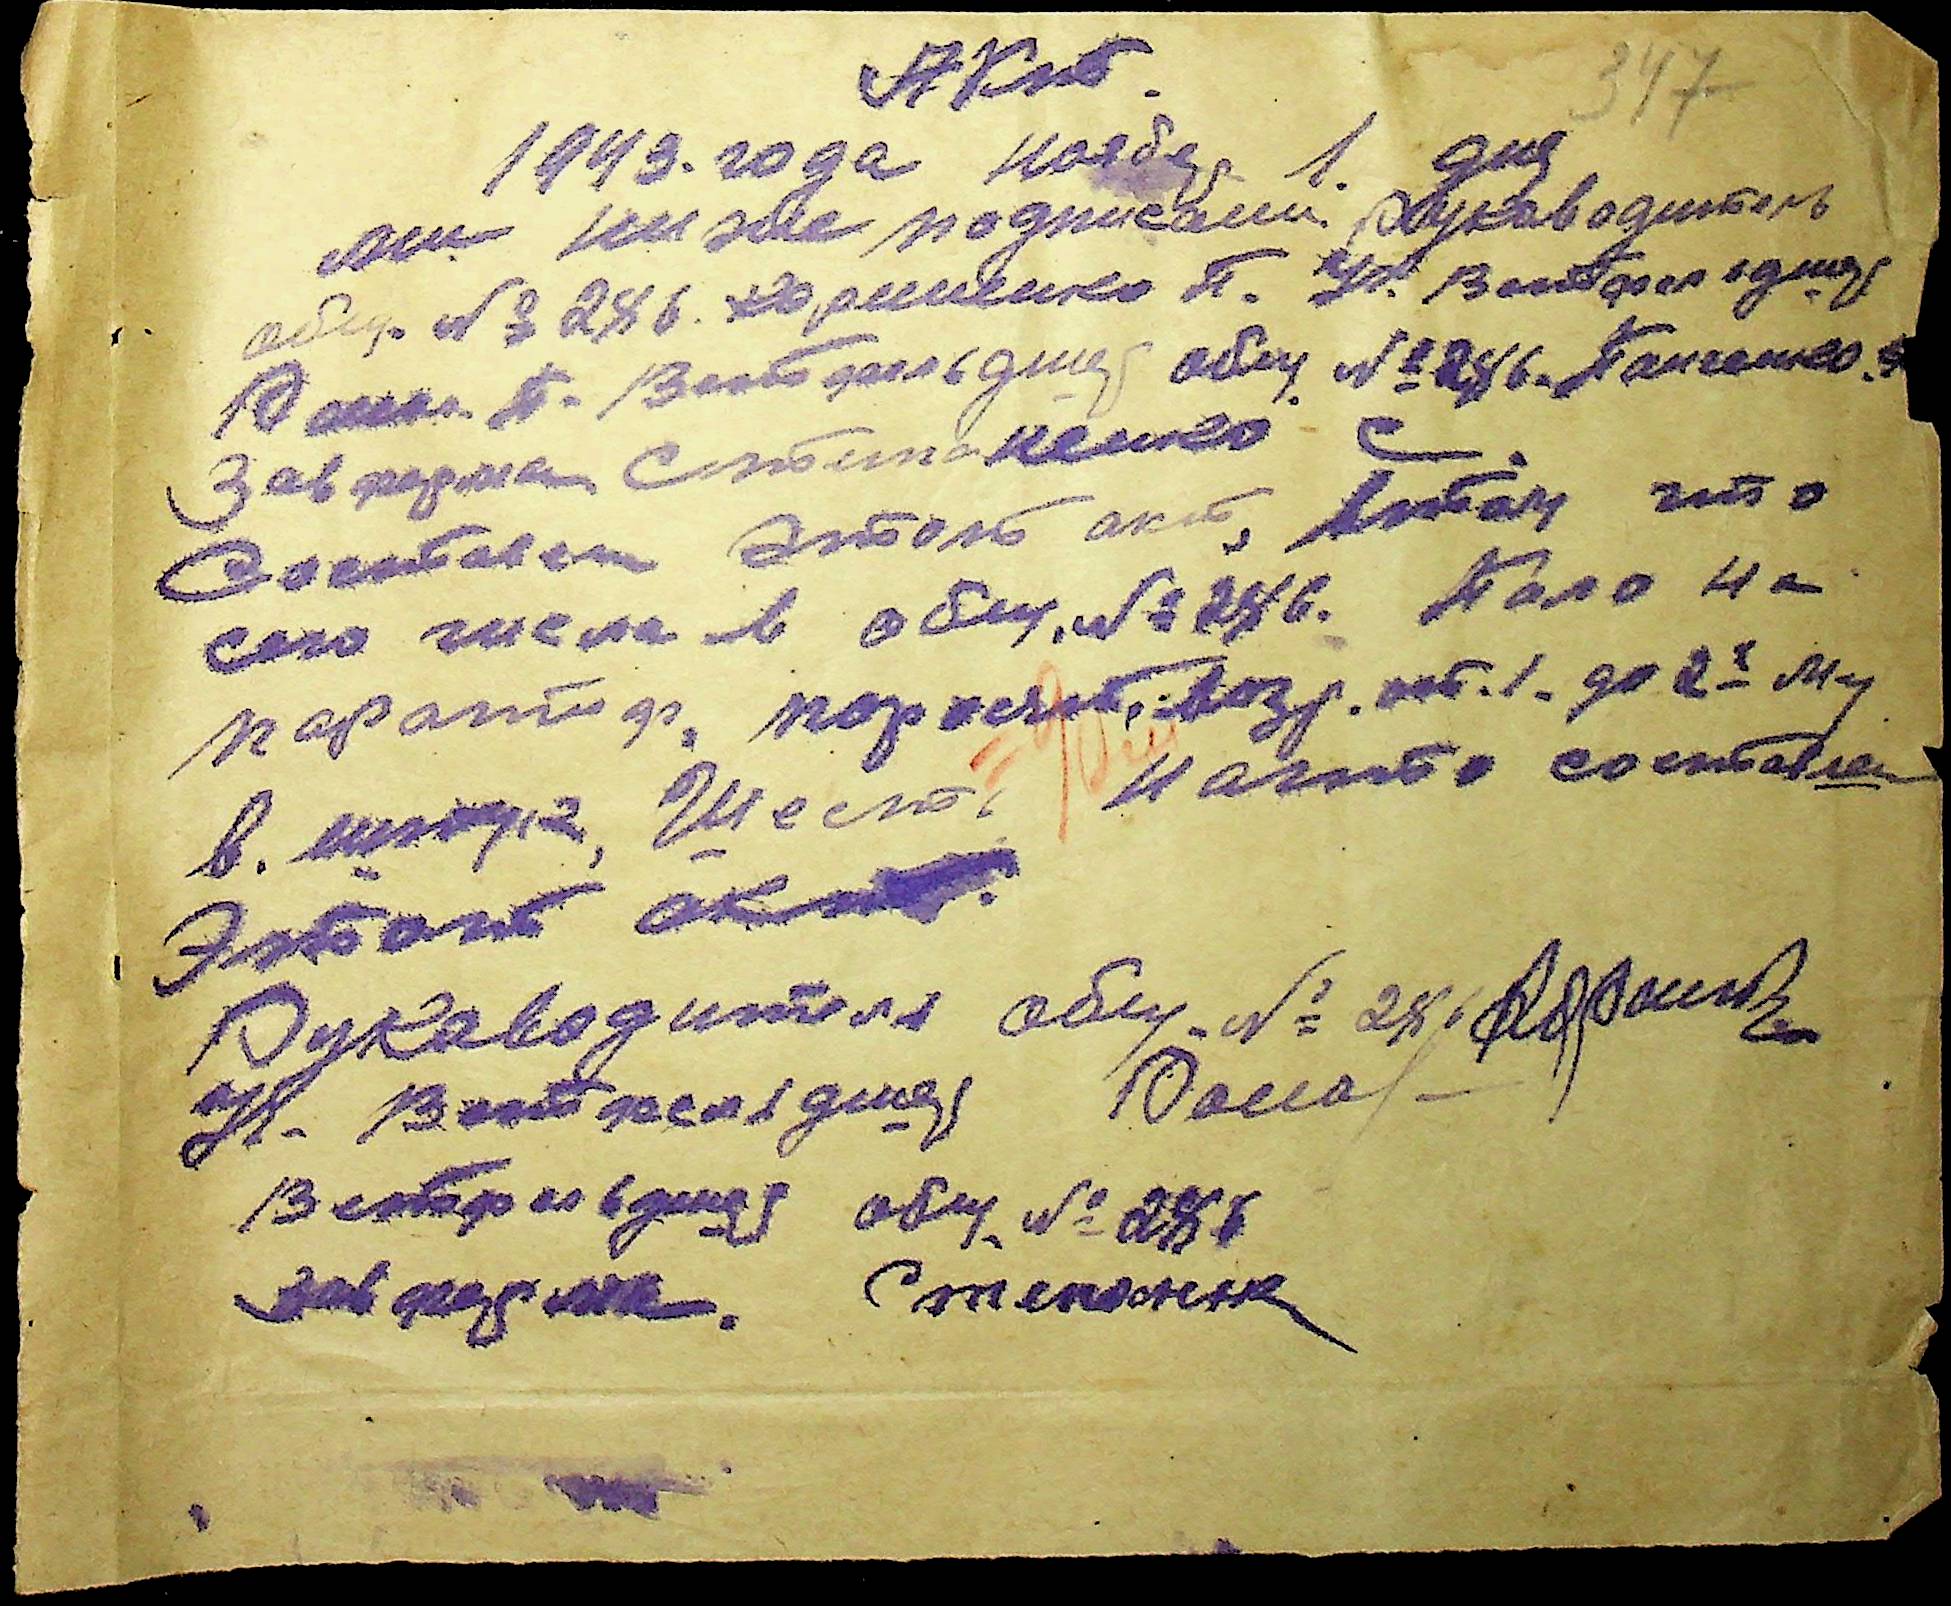 347
Акт.
1943. года ноябр 1. дня
мы ниже подписами. Руководитель
общ. № 286. П. Уч. Ветфельдшер
П. Ветфельдшер общ. № 286. Панченко.
Зав ферма Степаненко С.
Составен этот акт, Втом что
сего числа в общ. № 286. Пало на
паратиф. поросят, возр. от. 1. до 2х м.
в. штук, Шесть начто составлен
Этот акт.
Руководитель общ. № 286
Уч. Ветфельдшер
Ветфельдшер общ. № 286
зав ферма. Степаненк